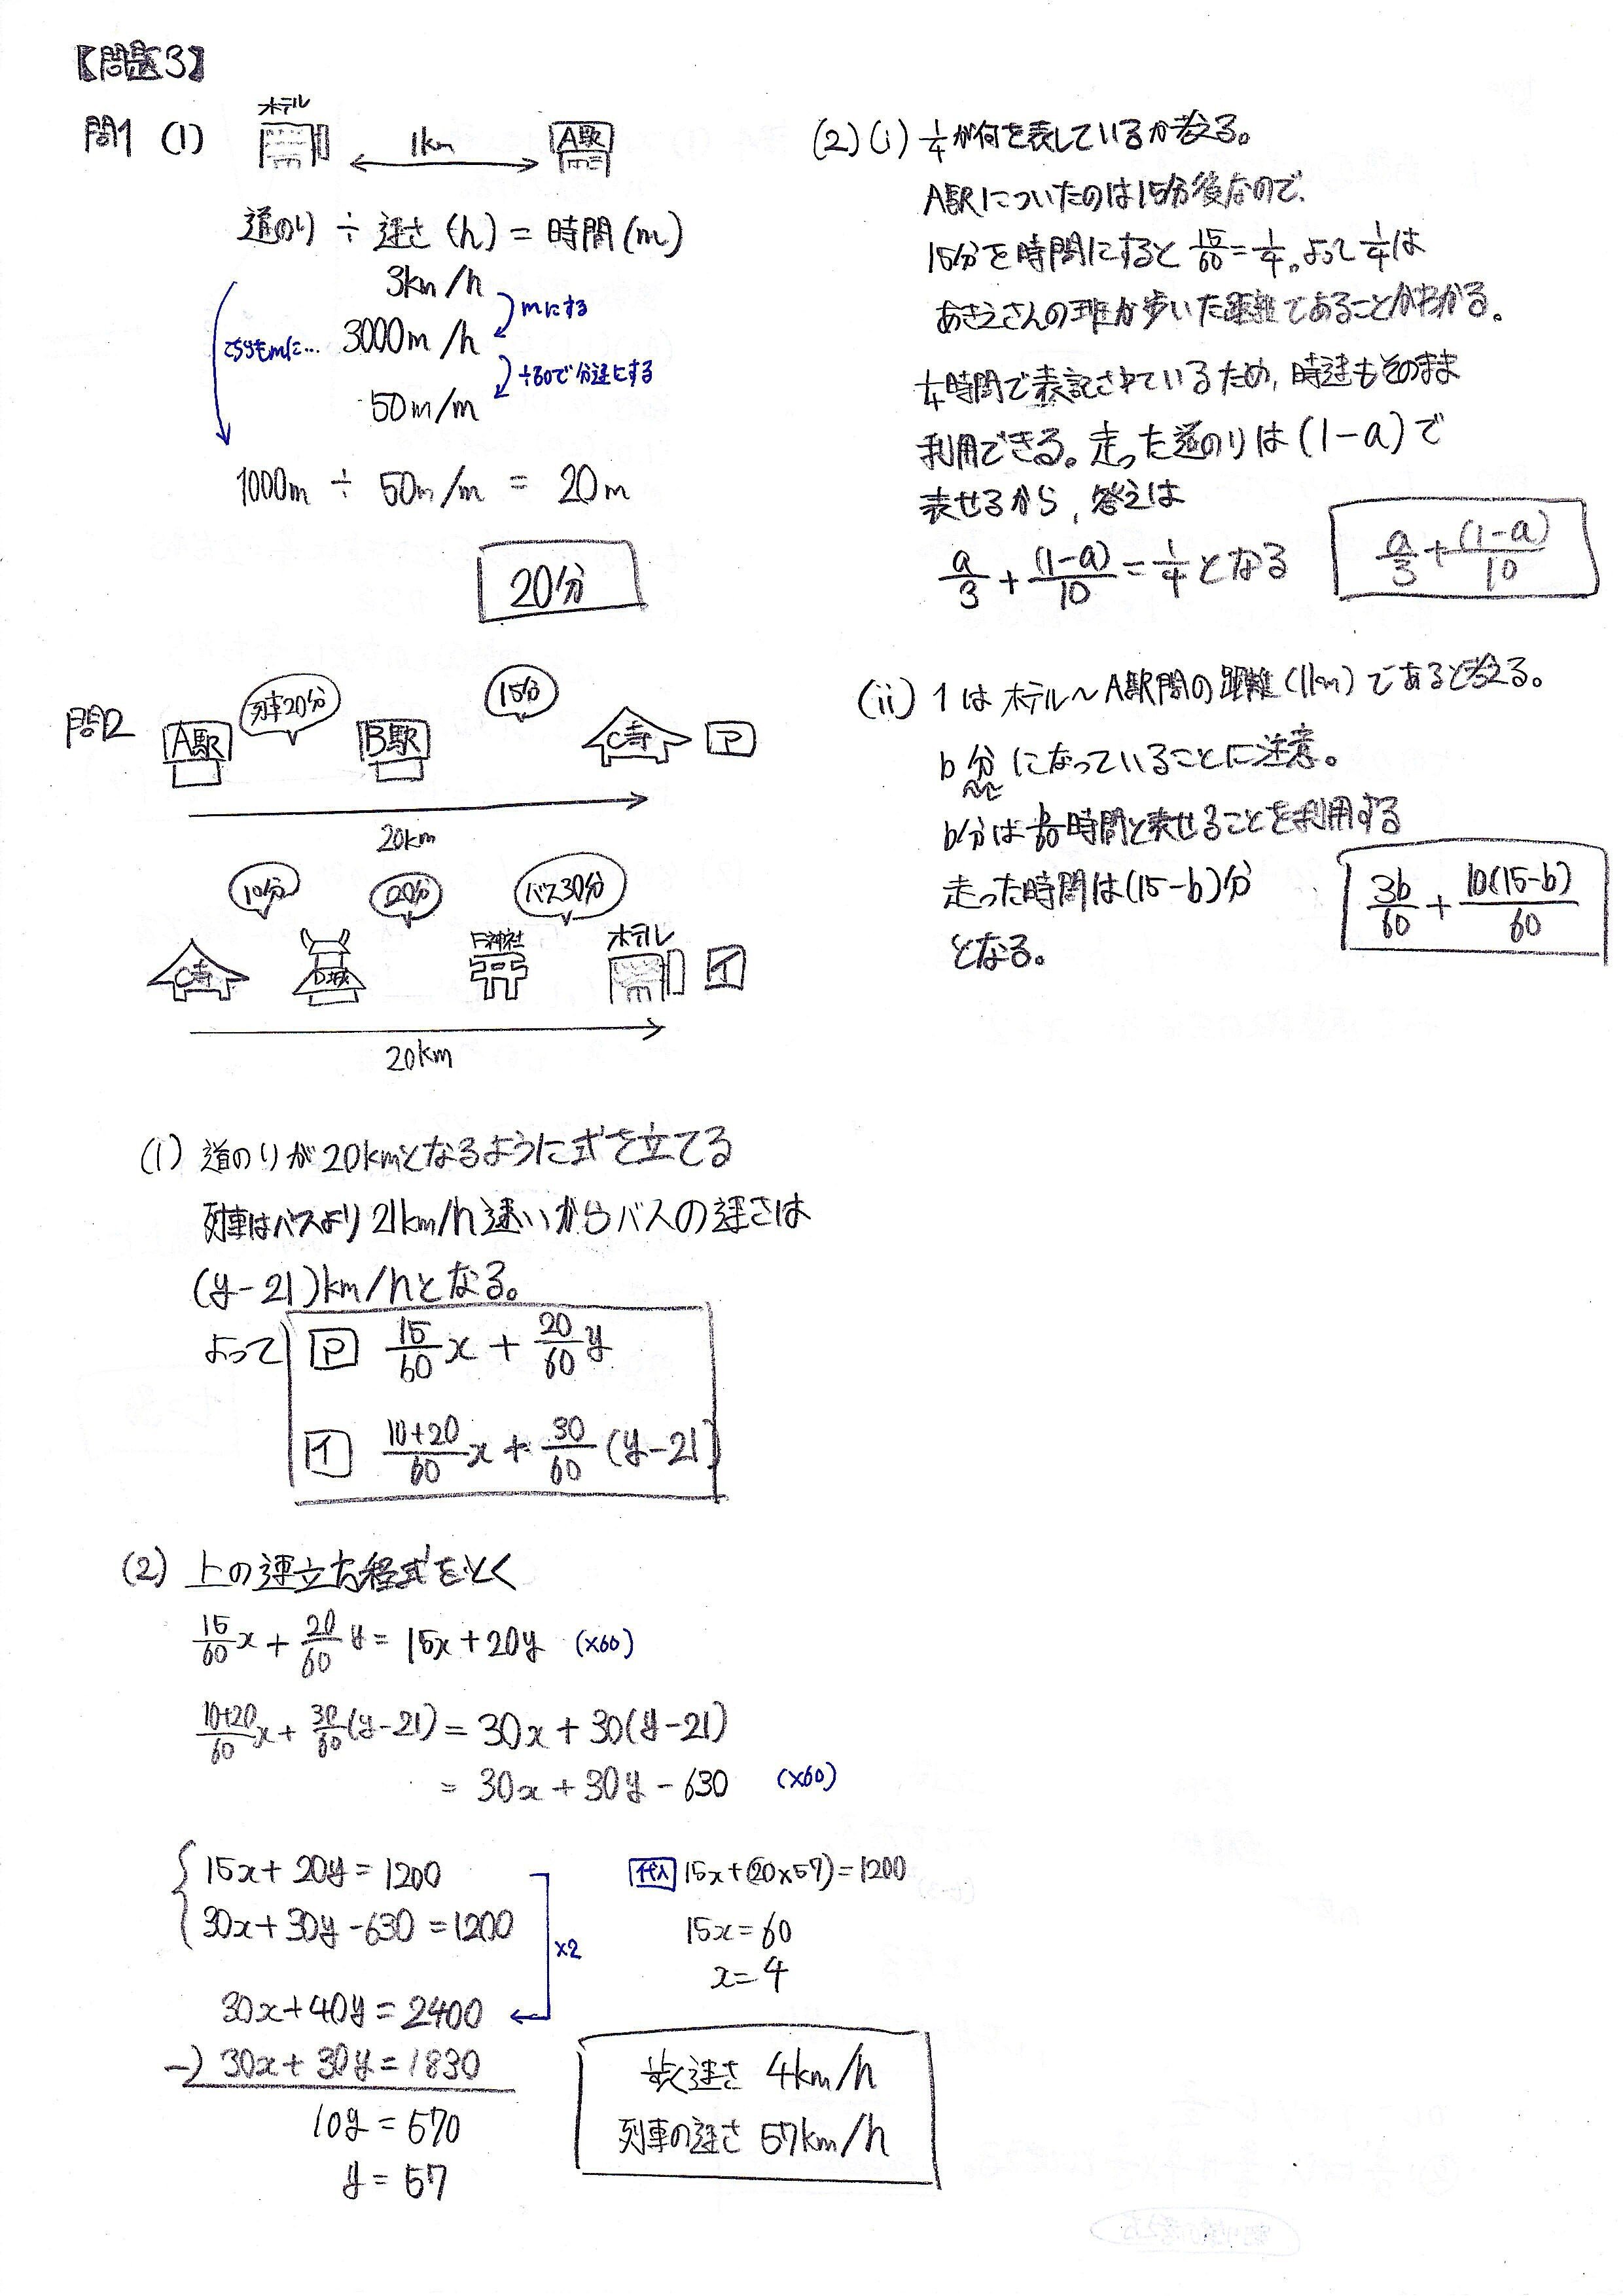 【問題3】
問1 (1)
ホテル
1km
A駅
道のり ÷ 速さ(h) = 時間(m)
3km/h
mにする
こちらもmに…
3000m/h
÷60で分速にする
50m/m
1000m ÷ 50m/m = 20m
20分
(2)(i) 1/4が何を表しているか考える。
A駅についたのは15分後なので、
15分を時間にすると 15/60=1/4。よって1/4は
あきえさんの班が歩いた距離であることがわかる。
1/4時間で表記されているため、時速もそのまま
利用できる。走った道のりは(1-a)で
表せるから、答えは
a/3 + (1-a)/10 = 1/4 となる
a/3 + (1-a)/10
(ii) 1は ホテル〜A駅間の距離(1km)であると考える。
b分になっていることに注意。
b分はb/60時間と表せることを利用する
走った時間は(15-b)分
となる。
3b/60 + 10(15-b)/60
問2
列車20分
15分
A駅
B駅
C寺
ア
20km
10分
20分
バス30分
C寺
D城
E神社
ホテル
イ
20km
(1) 道のりが20kmとなるように式を立てる
列車はバスより21km/h速いからバスの速さは
(y-21)km/hとなる。
よって ア 15/60x + 20/60y
イ 10+20/60x + 30/60(y-21)
(2) 上の連立方程式をとく
15/60x + 20/60y = 15x+20y (×60)
10+20/60x + 30/60(y-21) = 30x + 30(y-21)
= 30x + 30y - 630 (×60)
15x + 20y = 1200
30x + 30y - 630 = 1200
×2
30x + 40y = 2400
-) 30x + 30y = 1830
10y = 570
y = 57
代入 15x+(20×57)=1200
15x=60
x=4
歩く速さ 4km/h
列車の速さ 57km/h